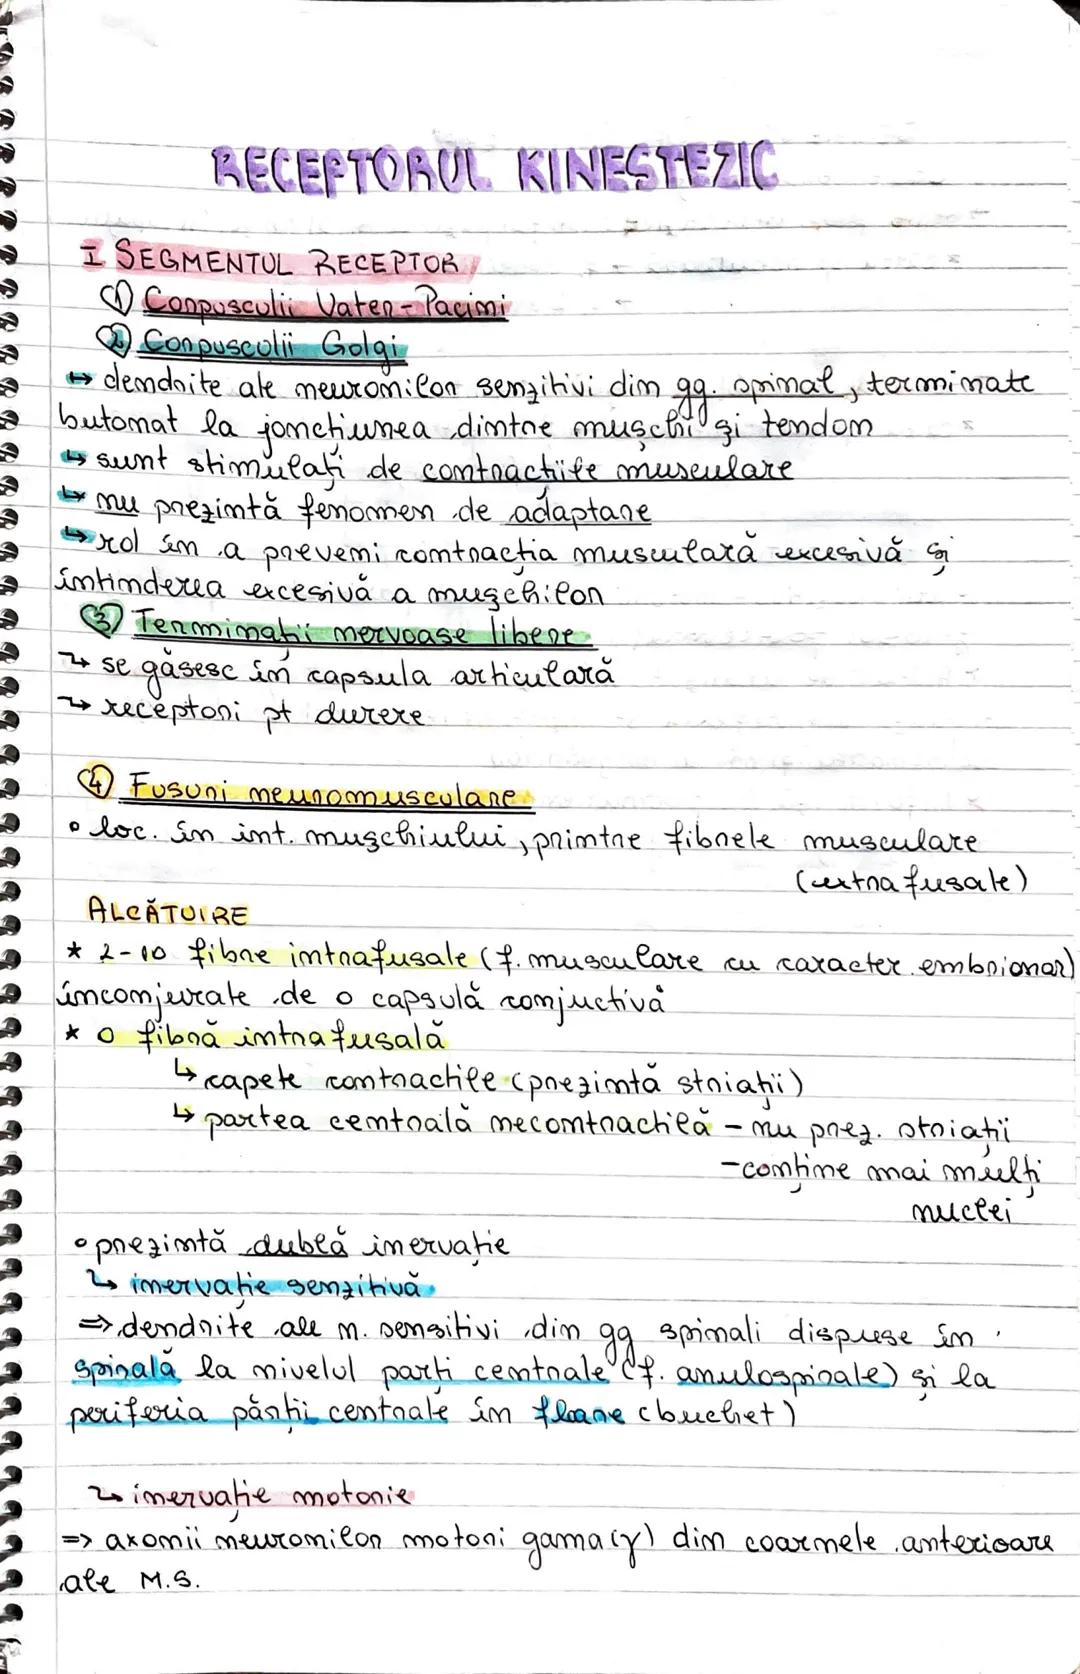 RECEPTORUL KINESTEZIC
I SEGMENTUL RECEPTOR
① Corpusculii Vater-Pacini
② Corpusculii Golgi
↔ dendrite ale neuronilor senzitivi din gg. spinal, terminate
butonat la joncțiunea dintre mușchi și tendon
↳ sunt stimulați de contracțiile musculare
↳ nu prezintă fenomen de adaptare
↳ rol în a preveni contracția musculară excesivă și
întinderea excesivă a mușchilor
③ Terminații nervoase libere
↳ se găsesc în capsula articulară
↳ receptori pt durere
④ Fusuri neuromusculare
• loc. în int. mușchiului, printre fibrele musculare
(extrafusale)
ALCĂTUIRE
* 2-10 fibre intrafusale (f. musculare cu caracter embrionar)
înconjurate de o capsulă conjuctivă
* o fibră intrafusală
↳ capete contractile (prezintă striații)
↳ partea centrală necontractilă - nu prez. striații
- conține mai mulți
nuclei
• prezintă dublă inervație
↳ inervație senzitivă
=> dendrite ale n. senzitivi din gg spinali dispuse în
spirală la nivelul părți centrale (f. anulospirale) și la
periferia părții centrale în floare (buchet)
↳ inervație motorie
=> axonii neuronilor motori gama (γ) din coarnele anterioare
ale M.S.